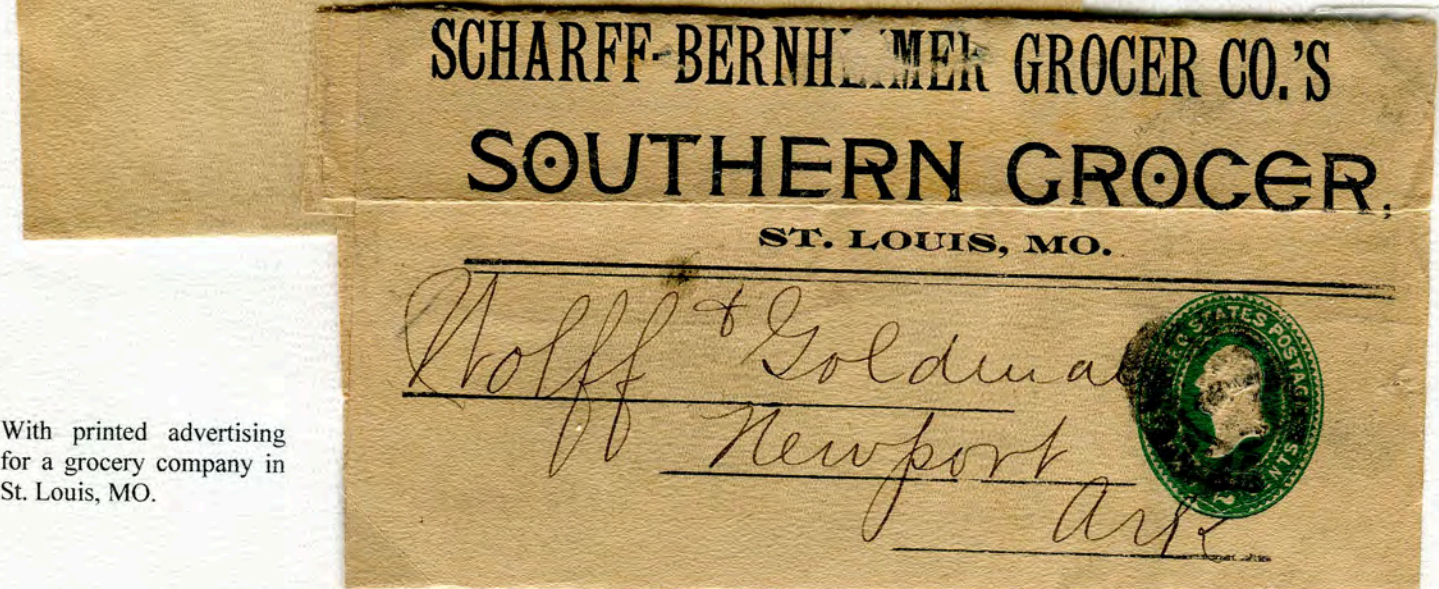 SCHARFF-BERNHEIMER GROCER CO.'S
SOUTHERN GROCER,
ST. LOUIS, MO.
Wolff & Goldman
Newport
Ark
STATES POSTAGE
2 CENTS
With printed advertising
for a grocery company in
St. Louis, MO.